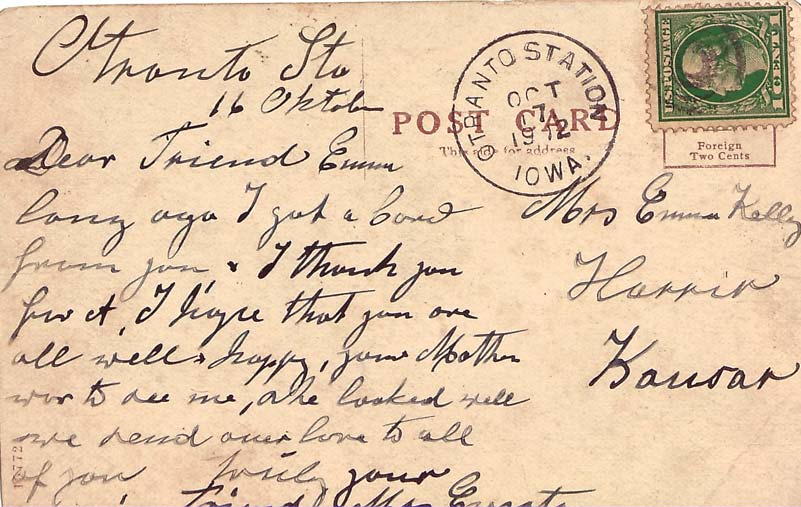 Otranto Sta
16 Oktober
Dear Friend Emma
long ago I got a Card
from you, & I thank you
for it, I hope that you are
all well & happy, your Mother
was to see me, she looked well
we send our love to all
of you truly your
friend Mrs
POST CARD
This side for address
OTRANTO STATION
OCT
17
1912
IOWA.
U.S. POSTAGE
1 CENT 1
Foreign
Two Cents
Mrs Emma Kelly
Harris
Kansas